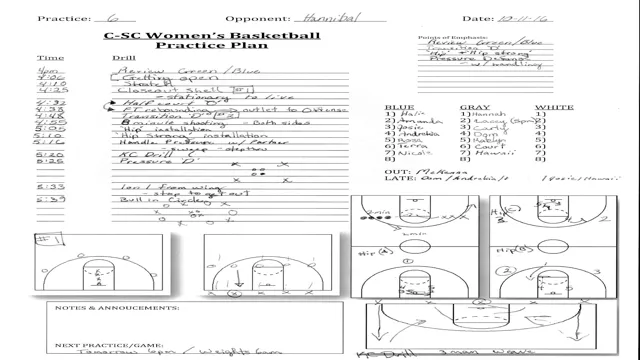 Practice: 6 Opponent: Hannibal Date: 10-11-16
C-SC Women's Basketball
Practice Plan
Points of Emphasis:
Review Green/Blue
Transition D
Hip + Hip strong
Pressure Defense
- w/ handling
Time Drill
4pm Review Green/Blue
4:06 Getting open
4:10 Stretch
4:25 Closeout Shell #1
- stationary to live
4:32 Half court D
4:38 FT rebounding → outlet to Offense
4:48 Transition D #2
4:55 8 minute shooting - Both sides
5:05 Hip installation
5:10 Hip Strong installation
5:16 Handle Pressure w/ Partner
- sweep - step thru
5:20 KC Drill
5:25 Pressure D
5:33 1on1 from wing
- stop to get out
5:39 Bull in Circle
BLUE GRAY WHITE
1) Halie 1) Hannah 1)
2) Amanda 2) Lacey 2)
3) Josie 3) Carly 3)
4) Andrahia 4) Dorp 4)
5) Rosa 5) Robyn 5)
6) Terra 6) Court 6)
7) Nicole 7) Hawaii 7)
8) 8) 8)
OUT: McKenna
LATE: / Josie/Hawaii
#1
2 min
2 min
Hip (A)
Hip (B)
NOTES & ANNOUCEMENTS:
NEXT PRACTICE/GAME:
Tomorrow 6pm / Weights 6am
KC Drill
3 man weave